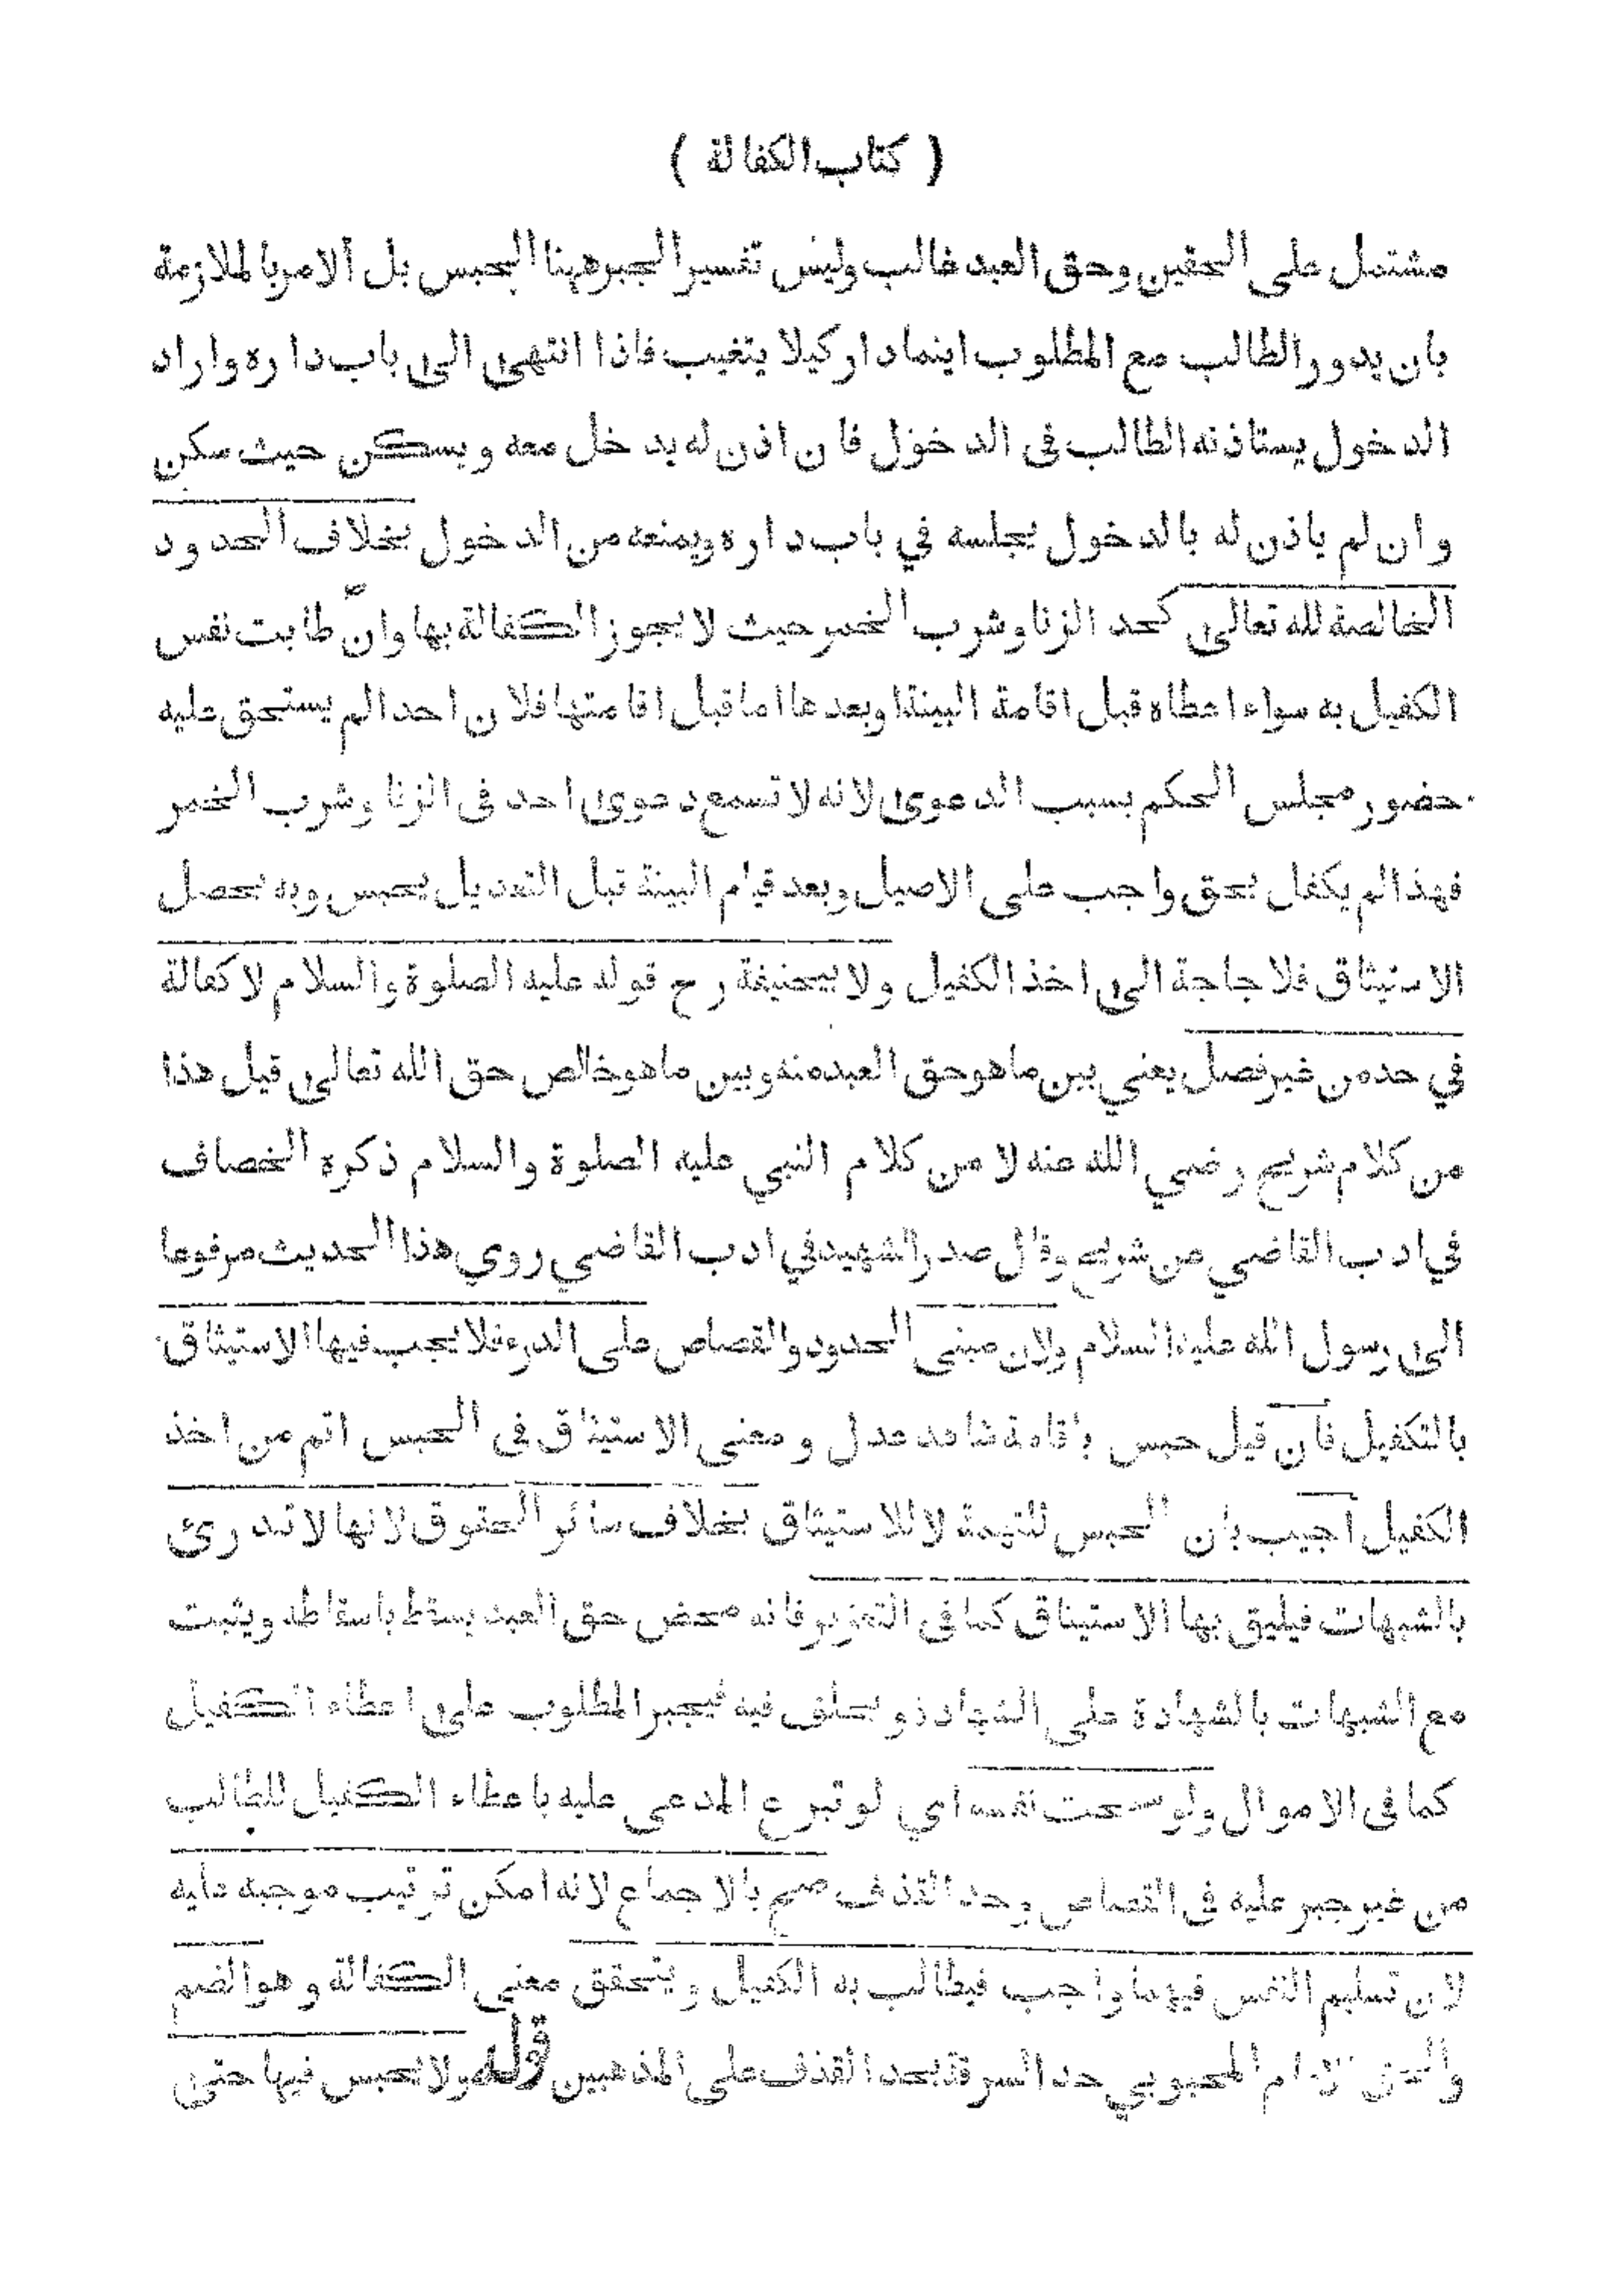 ( كتاب الكفالة )
مشتمل على الحقين وحق العبد غالب وليس تفسير الجبر ههنا الجبس بل الامر بالملازمة
بان يدور الطالب مع المطلوب اينما دار كيلا يتغيب فاذا انتهى الى باب داره واراد
الدخول يستاذنه الطالب فى الدخول فان اذن له يدخل معه ويسكن حيث سكن
وان لم ياذن له بالدخول يجلسه في باب داره ويمنعه من الدخول بخلاف الحدود
الخالصة لله تعالى كحد الزنا وشرب الخمر حيث لا يجوز الكفالة بها وان طابت نفس
الكفيل به سواء اعطاه قبل اقامة البينة او بعدها اما قبل اقامتها فلان احدا لم يستحق عليه
حضور مجلس الحكم بسبب الدعوى لانه لا تسمع دعوى احد فى الزنا وشرب الخمر
فهذا لم يكفل بحق واجب على الاصيل وبعد قيام البينة قبل التعديل يحبس وبه يحصل
الاستيثاق فلا حاجة الى اخذ الكفيل ولابيحنيفة رح قوله عليه الصلوة والسلام لا كفالة
في حد من غير فصل يعني بين ما هو حق العبد منه وبين ما هو خالص حق الله تعالى قيل هذا
من كلام شريح رضي الله عنه لا من كلام النبي عليه الصلوة والسلام ذكره الخصاف
في ادب القاضي عن شريح وقال صدر الشهيد في ادب القاضي روي هذا الحديث مرفوعا
الى رسول الله عليه السلام ولان مبنى الحدود والقصاص على الدرء فلا يجب فيها الاستيثاق
بالتكفيل فان قيل حبس باقامة شاهد عدل ومعنى الاستيثاق فى الحبس اتم من اخذ
الكفيل اجيب بان الحبس للتهمة لا للاستيثاق بخلاف سائر الحقوق لانها لا تدرئ
بالشبهات فيليق بها الاستيثاق كما فى التعزير فانه محض حق العبد يسقط باسقاطه ويثبت
مع الشبهات بالشهادة على الشهادة ويحلف فيه فيجبر المطلوب على اعطاء الكفيل
كما فى الاموال ولو سمحت نفسه اي لو تبرع المدعى عليه باعطاء الكفيل للطالب
من غير جبر عليه فى القصاص وحد القذف صح بالاجماع لانه امكن ترتيب موجبه عليه
لان تسليم النفس فيهما واجب فيطالب به الكفيل ويتحقق معنى الكفالة وهو الضم
والحق الامام المحبوبي حد السرقة بحد القذف على المذهبين قوله ولا يحبس فيها حتى